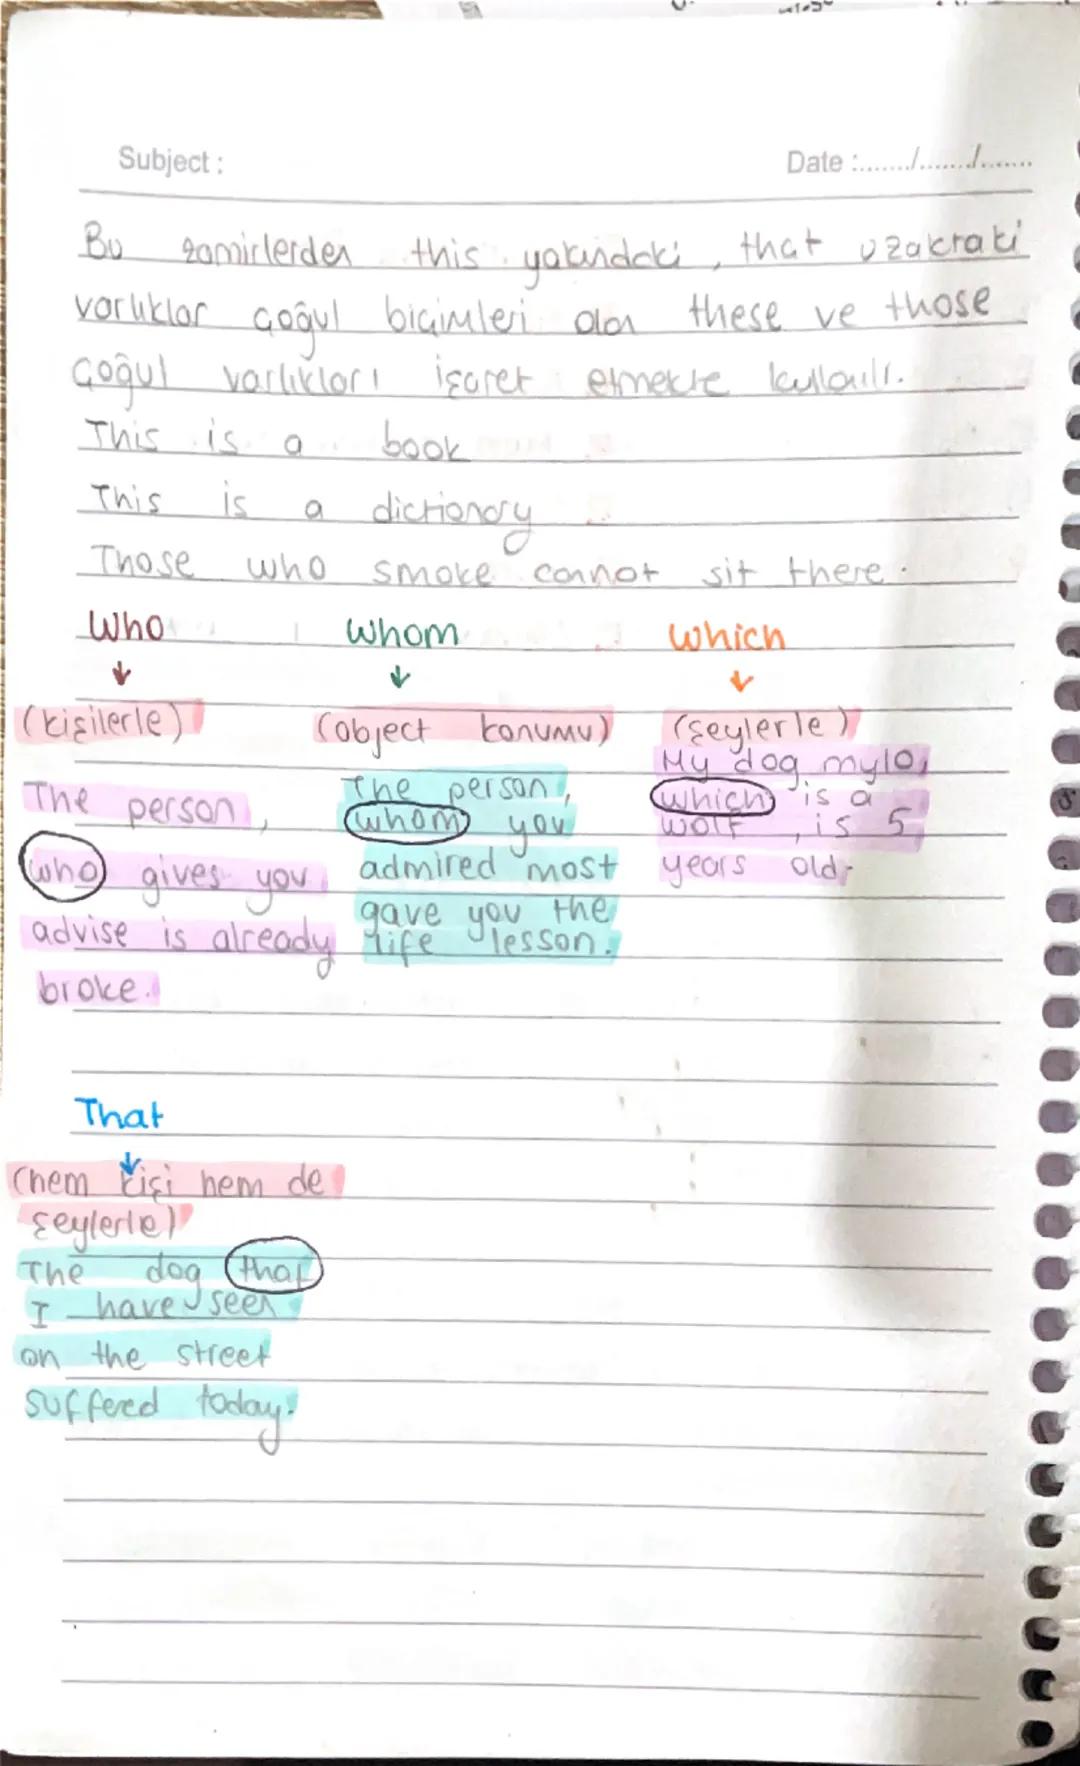 Subject :
Date :......./......./.......
Bu zamirlerden this yakındaki, that uzaktaki
varlıklar çoğul biçimleri olan these ve those
çoğul varlıkları işaret etmekte kullanılır.
This is a book
This is a dictionary
Those who smoke cannot sit there.
Who
(kişilerle)
The person,
who gives you
advise is already
broke.
Whom
(object konumu)
The person,
whom you
admired most
gave you the
life lesson.
Which
(şeylerle)
My dog mylo,
which is a
wolf, is 5
years old.
That
(hem kişi hem de
şeylerle)
The dog that
I have seen
on the street
suffered today.